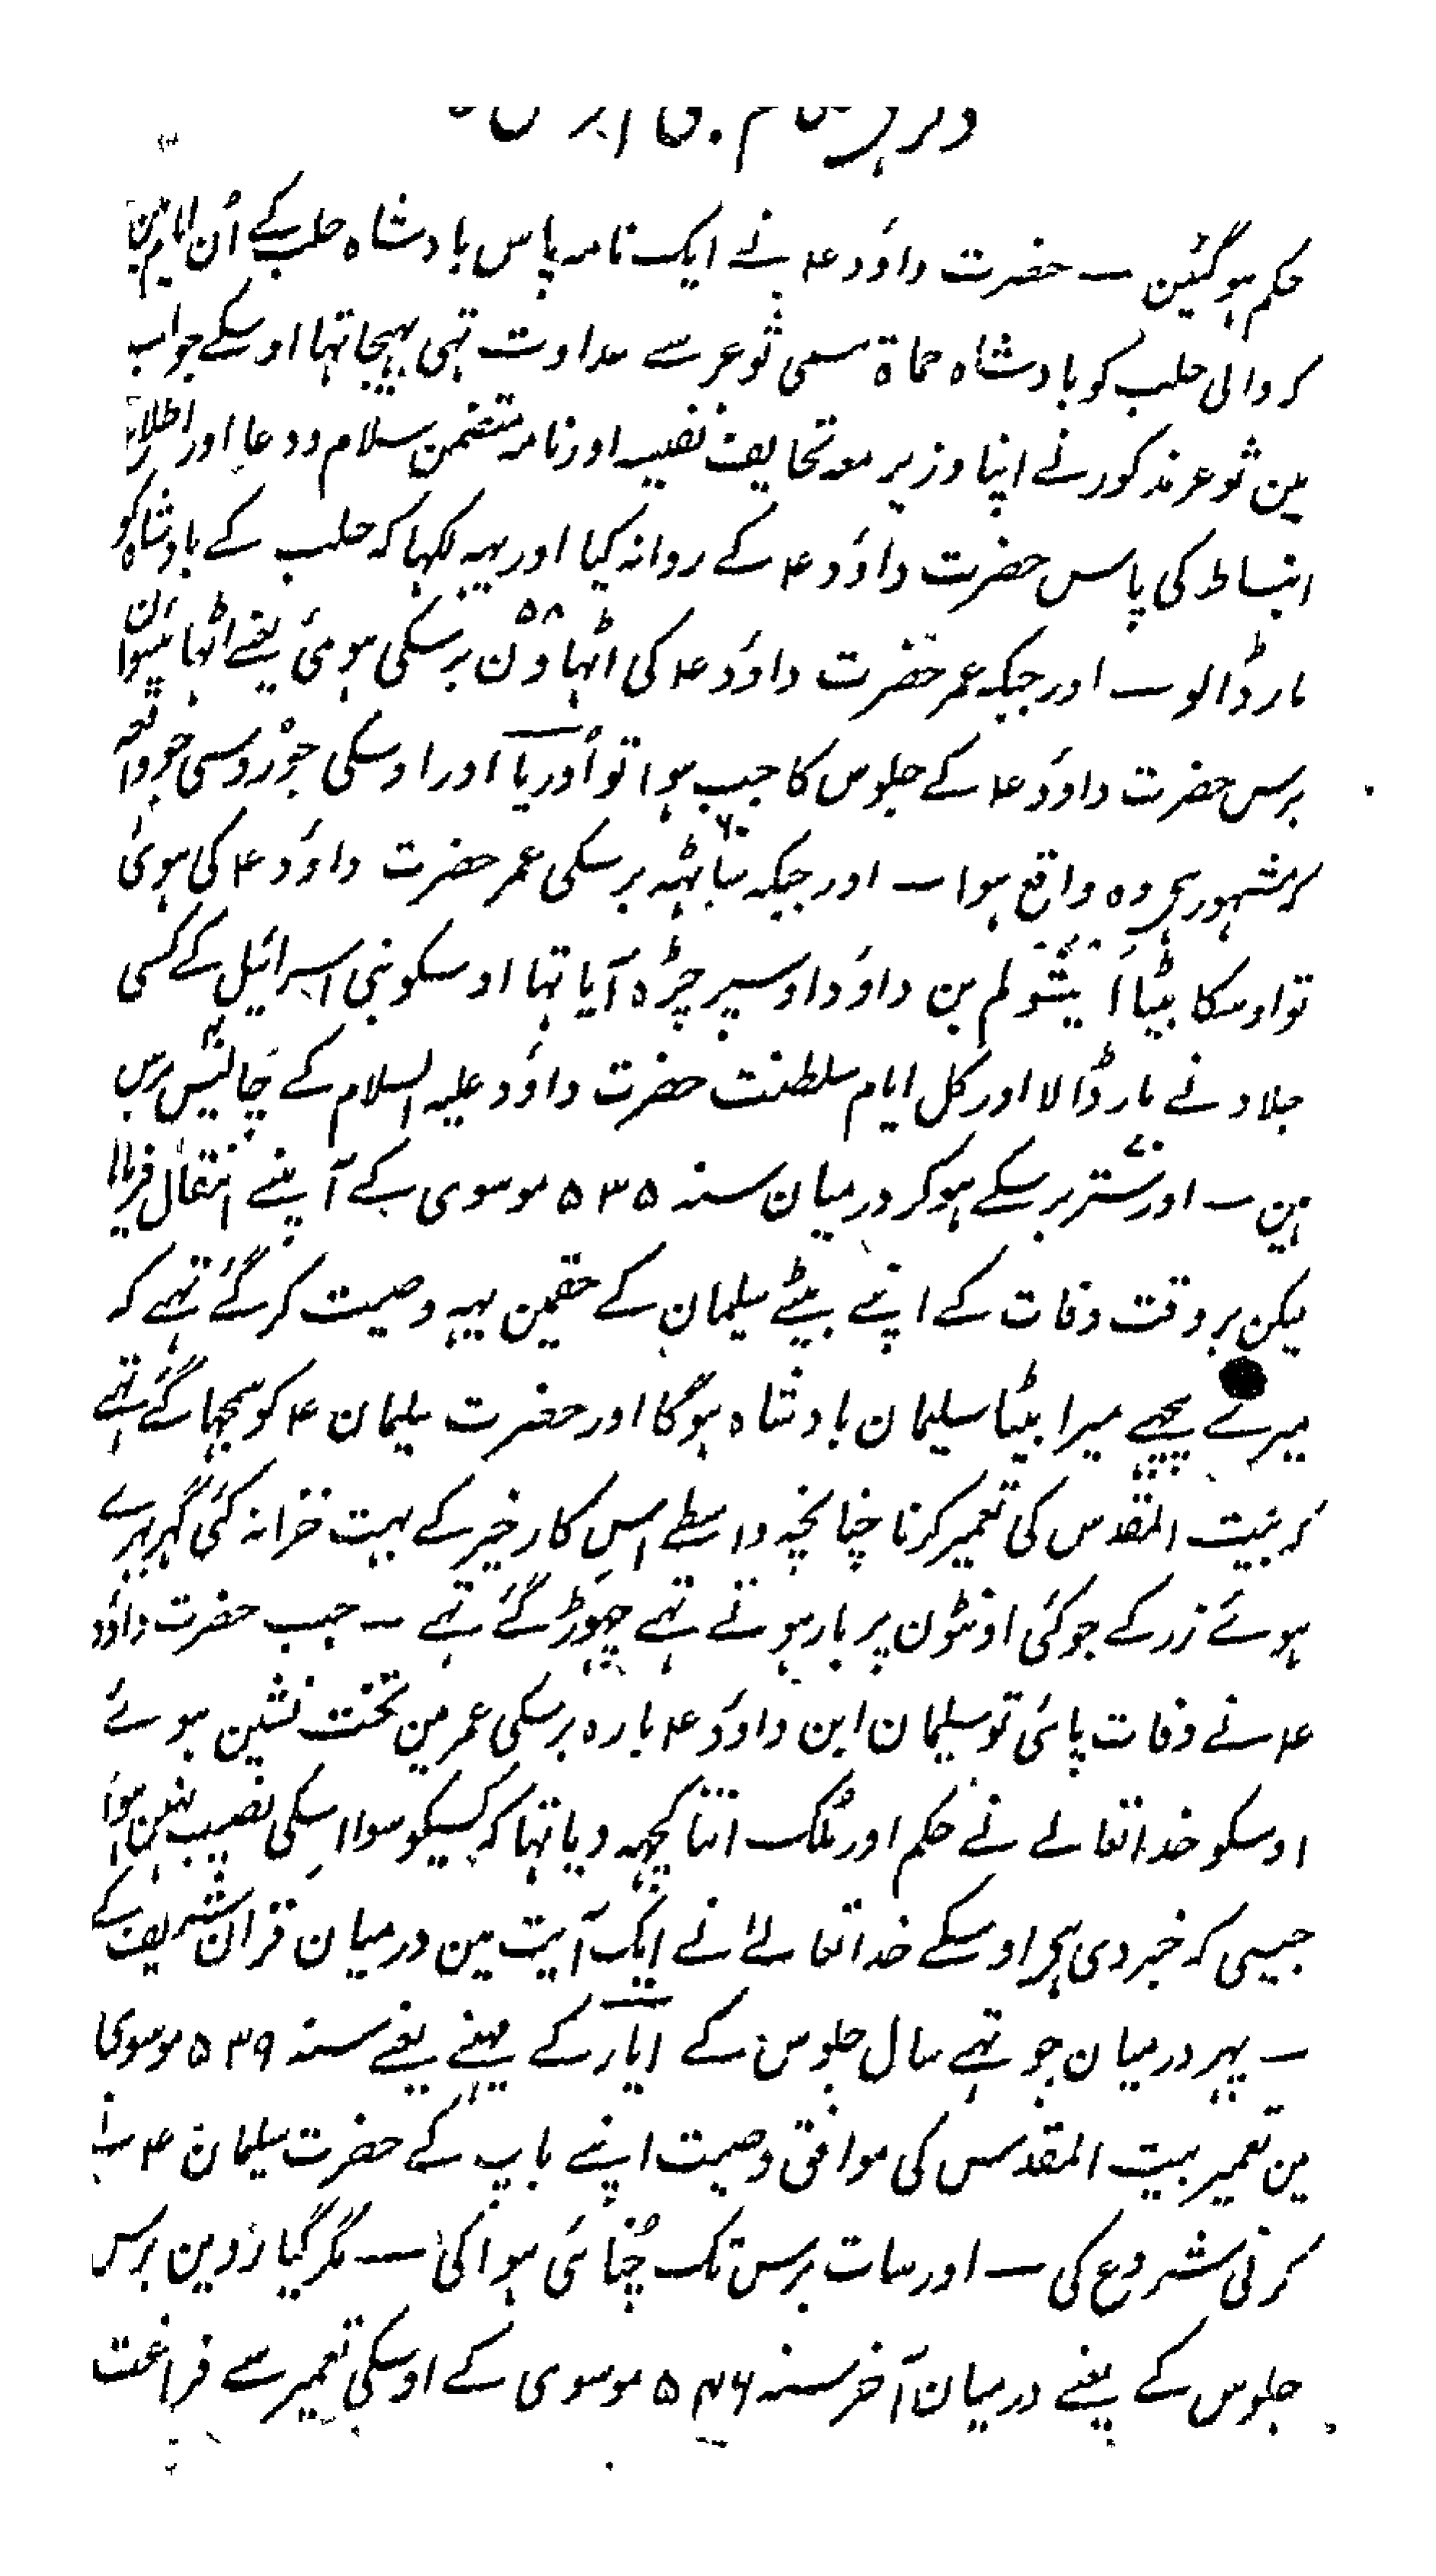 حکم ہوگئین ــ حضرت داؤد ۴ نے ایک نامہ پاس بادشاہ حلب کے اُن ایام مین
کہ والی حلب کو بادشاہ حماة مسمی ثوعر سے عداوت تہی بہیجا تہا اوسکے جواب
مین ثوعر مذکور نے اپنا وزیر معہ تحایف نفیسہ اور نامہ متضمن سلام و دعا اور اظہار
انبساط کی پاس حضرت داؤد ۴ کے روانہ کیا اور یہہ لکہا کہ حلب کے بادشاہ کو
مار ڈالو ــ اور جبکہ عمر حضرت داؤد ۴ کی اٹہاون ۵۸ برسکی ہوئی یعنے اٹہائیسوان
برس حضرت داؤد ۴ کے جلوس کا جب ہوا تو اُوریا اور اوسکی جوروسی جو واقعہ
کہ مشہور ہی وہ واقع ہوا ــ اور جبکہ ساٹہہ ۶۰ برسکی عمر حضرت داؤد ۴ کی ہوئی
تو اوسکا بیٹا اَبیشولم بن داؤد اوسپر چڑہ آیا تہا اوسکو بنی اسرائیل کے کسی
جلاد نے مار ڈالا اور کل ایام سلطنت حضرت داؤد علیہ السلام کے چالیس ۴۰ برس
ہین ــ اور ستر ۷۰ برسکے ہوکر درمیان سنہ ۵۳۵ موسوی کے آپنے انتقال فرمایا
لیکن بروقت وفات کے اپنے بیٹے سلیمان کے حقمین یہہ وصیت کر گئے تہے کہ
میرے پیچہے میرا بیٹا سلیمان بادشاہ ہوگا اور حضرت سلیمان ۴ کو سمجہا گئے تہے
کہ بیت المقدس کی تعمیر کرنا چنانچہ واسطے اس کار خیر کے بہت خزانہ کئی گہر بہرے
ہوئے زر کے جو کئی اونٹون پر بار ہوتے تہے چہوڑ گئے تہے ــ جب حضرت داؤد
۴ نے وفات پائی تو سلیمان ابن داؤد ۴ بارہ برسکی عمر مین تخت نشین ہوئے
اوسکو خدا تعالے نے حکم اور ملک اتنا کچہہ دیا تہا کہ کسیکو سوا اسکی نصیب نہین ہوا
جیسی کہ خبر دی ہی اوسکے خدا تعالےٰ نے ایک آیت مین درمیان قران شریف کے
ــ پہر درمیان چوتہے سال جلوس کے ایار کے مہینے یعنے سنہ ۵۳۹ موسوی
مین تعمیر بیت المقدس کی موافق وصیت اپنے باپ کے حضرت سلیمان ۴
کرنی شروع کی ــ اور سات برس تک چُنائی ہوا کی ــ مگر گیارہوین برس
جلوس کے یعنے درمیان آخر سنہ ۵۴۶ موسوی کے اوسکی تعمیر سے فراغت